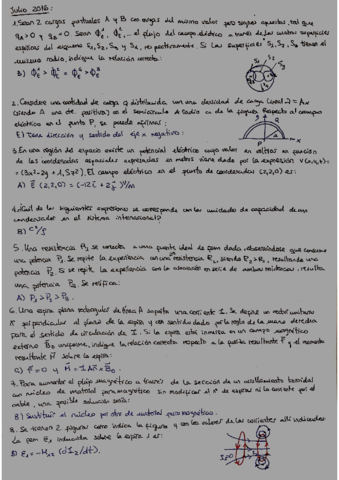 Julio 2016:
1. Sean 2 cargas puntuales A y B con cargas del mismo valor pero signos opuestos, tal que
qA>0 y qB<0. Sean el flujo del campo eléctrico a través de las cuatro superficies
esféricas del esquema S1, S2, S3 y S4, respectivamente. Si las superficies S1, S2, S3 tienen el
mismo radio, indique la relación correcta:
B)
2. Considere una cantidad de carga q distribuida con una densidad de carga lineal λ = Ax
siendo A una cte. positiva) en el semicírculo de radio a de la figura. Respecto al campo
eléctrico en el punto P, se puede afirmar:
E) Tiene dirección y sentido del eje x negativo.
3. En una región del espacio existe un potencial eléctrico cuyo valor en voltios en función
de las coordenadas espaciales expresadas en metros viene dado por la expresión V(x,y,z)=
=(3x²-2y+1,5z²). El campo eléctrico en el punto de coordenadas (2,2,0) es:
A) E (2,2,0) = (-12i + 2j) V/m
4. ¿Cuál de las siguientes expresiones se corresponde con las unidades de capacidad de un
condensador en el sistema internacional?
B) C²/J
5. Una resistencia R1 se conecta a una fuente ideal de fem dada, observándose que consume
una potencia P1. Se repite la experiencia con una resistencia R2, siendo R2>R1, resultando una
potencia P2. Si se repite la experiencia con la asociación en serie de ambas resistencias, resulta
una potencia P3. Se verifica:
A) P1 > P2 > P3.
6. Una espira plana rectangular de área A soporta una corriente I. Se define un vector unitario
n perpendicular al plano de la espira y con sentido dado por la regla de la mano derecha
para el sentido de circulación de I. Si la espira está inmersa en un campo magnético
externo B0 uniforme, indique la relación correcta respecto a la fuerza resultante F y el momento
resultante M sobre la espira:
C) F = 0 y M = I A n × B0.
7. Para aumentar el flujo magnético a través de la sección de un arrollamiento toroidal
con núcleo de material paramagnético sin modificar el nº de espiras ni la corriente por el
cable, una posible solución sería:
B) Sustituir el núcleo por otro de material ferromagnético.
8. Se tienen 2 espiras como indica la figura y con los valores de las corrientes allí indicados.
La fem E1 inducida sobre la espira 1 es:
D) E1 = -M12 (dI2/dt).
I1=0